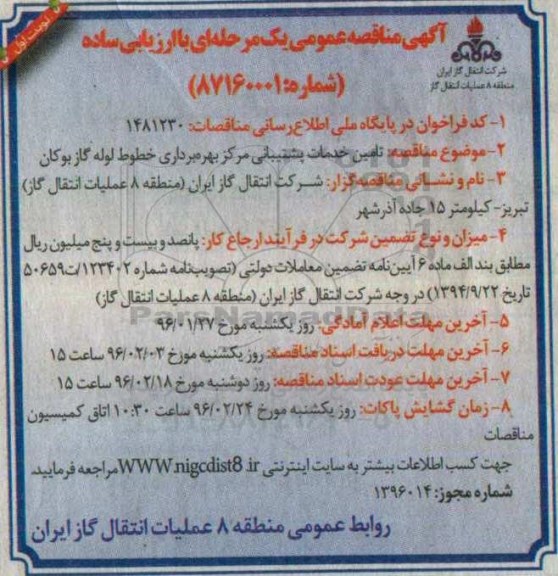 نوبت اول
آگهی مناقصه عمومی یک مرحله‌ای با ارزیابی ساده
(شماره: ۸۷۱۶۰۰۰۱)
شرکت انتقال گاز ایران
منطقه ۸ عملیات انتقال گاز
۱- کد فراخوان در پایگاه ملی اطلاع‌رسانی مناقصات: ۱۴۸۱۲۳۰
۲- موضوع مناقصه: تامین خدمات پشتیبانی مرکز بهره‌برداری خطوط لوله گاز بوکان
۳- نام و نشانی مناقصه‌گزار: شرکت انتقال گاز ایران (منطقه ۸ عملیات انتقال گاز)
تبریز- کیلومتر ۱۵ جاده آذرشهر
۴- میزان و نوع تضمین شرکت در فرآیند ارجاع کار: پانصد و بیست و پنج میلیون ریال
مطابق بند الف ماده ۶ آیین‌نامه تضمین معاملات دولتی (تصویب‌نامه شماره ۱۲۳۴۰۲/ت۵۰۶۵۹
تاریخ ۱۳۹۴/۹/۲۲) در وجه شرکت انتقال گاز ایران (منطقه ۸ عملیات انتقال گاز)
۵- آخرین مهلت اعلام آمادگی: روز یکشنبه مورخ ۹۶/۰۱/۲۷
۶- آخرین مهلت دریافت اسناد مناقصه: روز یکشنبه مورخ ۹۶/۰۲/۰۳ ساعت ۱۵
۷- آخرین مهلت عودت اسناد مناقصه: روز دوشنبه مورخ ۹۶/۰۲/۱۸ ساعت ۱۵
۸- زمان گشایش پاکات: روز یکشنبه مورخ ۹۶/۰۲/۲۴ ساعت ۱۰:۳۰ اتاق کمیسیون
مناقصات
جهت کسب اطلاعات بیشتر به سایت اینترنتی WWW.nigcdist8.ir مراجعه فرمایید.
شماره مجوز: ۱۳۹۶۰۱۴
روابط عمومی منطقه ۸ عملیات انتقال گاز ایران
ParsNamadData